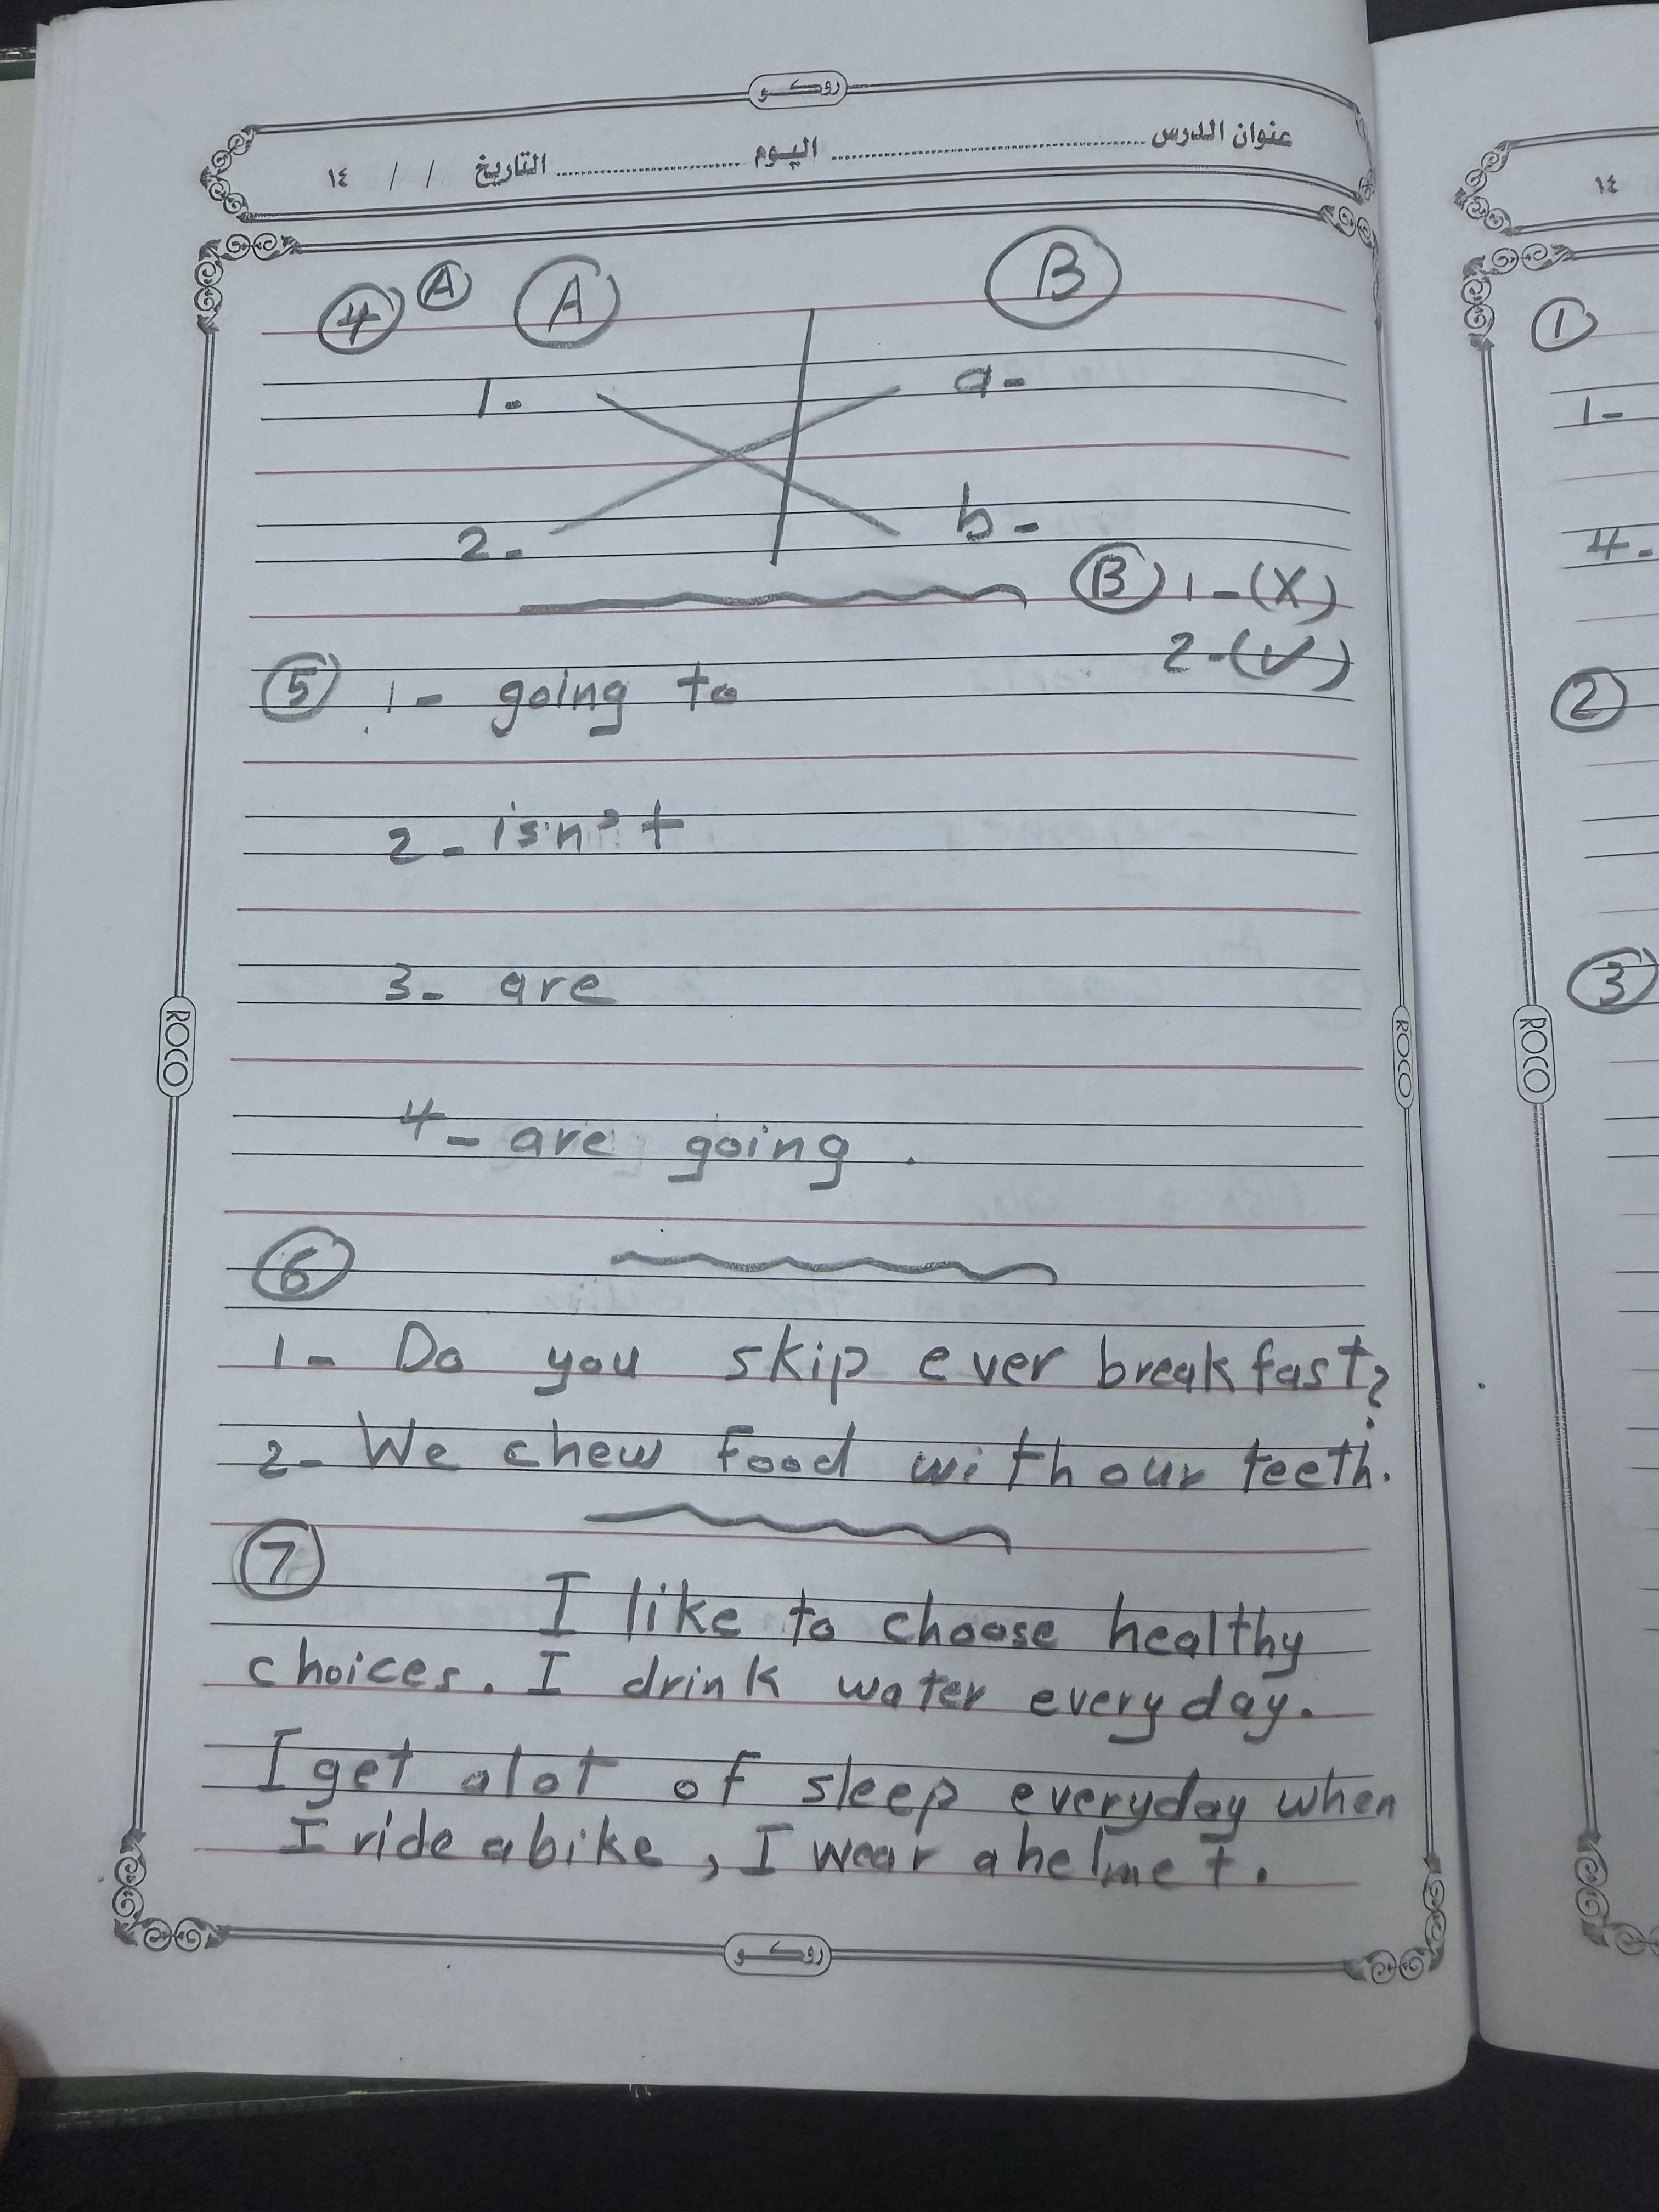 روكو
عنوان الدرس ........ اليوم ........ التاريخ / / ١٤
4 A A B
1- a-
2- b-
B 1-(X)
2-(✓)
5 1- going to
2- isn't
3- are
4- are going .
6
1- Do you skip ever breakfast?
2- We chew food with our teeth.
7 I like to choose healthy
choices. I drink water every day.
I get alot of sleep everyday when
I ride a bike, I wear a helmet.
روكو
ROCO
ROCO
١٤
1
1-
4-
2
3
ROCO